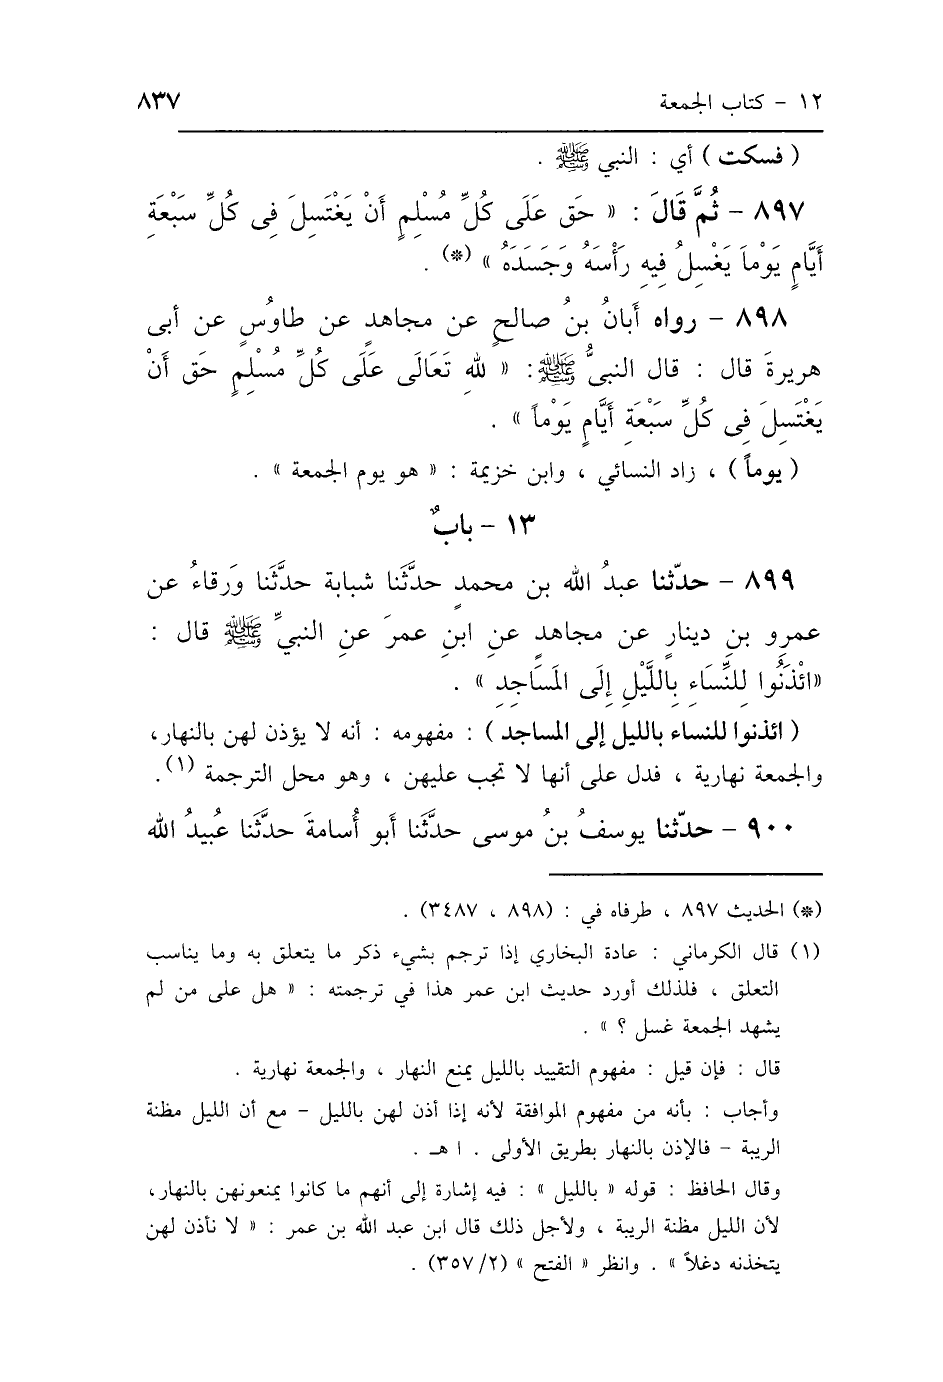 ١٢ - كتاب الجمعة ٨٣٧
( فسكت ) أي : النبي ﷺ .
٨٩٧ - ثُمَّ قَالَ : « حَق عَلَى كُلِّ مُسْلِمٍ أَنْ يَغْتَسِلَ فِى كُلِّ سَبْعَةِ
أَيَّامٍ يَوْماً يَغْسِلُ فِيهِ رَأْسَهُ وَجَسَدَهُ » (*) .
٨٩٨ - رواه أَبانُ بنُ صالحٍ عن مجاهدٍ عن طاوُسٍ عن أبى
هريرةَ قال : قال النبىُّ ﷺ : « للهِ تَعَالَى عَلَى كُلِّ مُسْلِمٍ حَق أَنْ
يَغْتَسِلَ فِى كُلِّ سَبْعَةِ أَيَّامٍ يَوْماً » .
( يوماً ) ، زاد النسائي ، وابن خزيمة : « هو يوم الجمعة » .
١٣ - بابٌ
٨٩٩ - حدّثنا عبدُ الله بن محمدٍ حدَّثَنا شبابة حدَّثَنا وَرقاءُ عن
عمرِو بنِ دينارٍ عن مجاهدٍ عنِ ابنِ عمرَ عنِ النبيِّ ﷺ قال :
«ائْذَنُوا لِلنِّسَاءِ بِاللَّيْلِ إِلَى المَسَاجِدِ » .
( ائذنوا للنساء بالليل إلى المساجد ) : مفهومه : أنه لا يؤذن لهن بالنهار،
والجمعة نهارية ، فدل على أنها لا تجب عليهن ، وهو محل الترجمة (١).
٩٠٠ - حدّثنا يوسفُ بنُ موسى حدَّثَنا أَبو أُسامةَ حدَّثَنا عُبيدُ الله
(*) الحديث ٨٩٧ ، طرفاه في : (٨٩٨ ، ٣٤٨٧) .
(١) قال الكرماني : عادة البخاري إذا ترجم بشيء ذكر ما يتعلق به وما يناسب
التعلق ، فلذلك أورد حديث ابن عمر هذا في ترجمته : « هل على من لم
يشهد الجمعة غسل ؟ » .
قال : فإن قيل : مفهوم التقييد بالليل يمنع النهار ، والجمعة نهارية .
وأجاب : بأنه من مفهوم الموافقة لأنه إذا أذن لهن بالليل - مع أن الليل مظنة
الريبة - فالإذن بالنهار بطريق الأولى . ا هـ .
وقال الحافظ : قوله « بالليل » : فيه إشارة إلى أنهم ما كانوا يمنعونهن بالنهار،
لأن الليل مظنة الريبة ، ولأجل ذلك قال ابن عبد الله بن عمر : « لا نأذن لهن
يتخذنه دغلاً » . وانظر « الفتح » (٣٥٧/٢) .